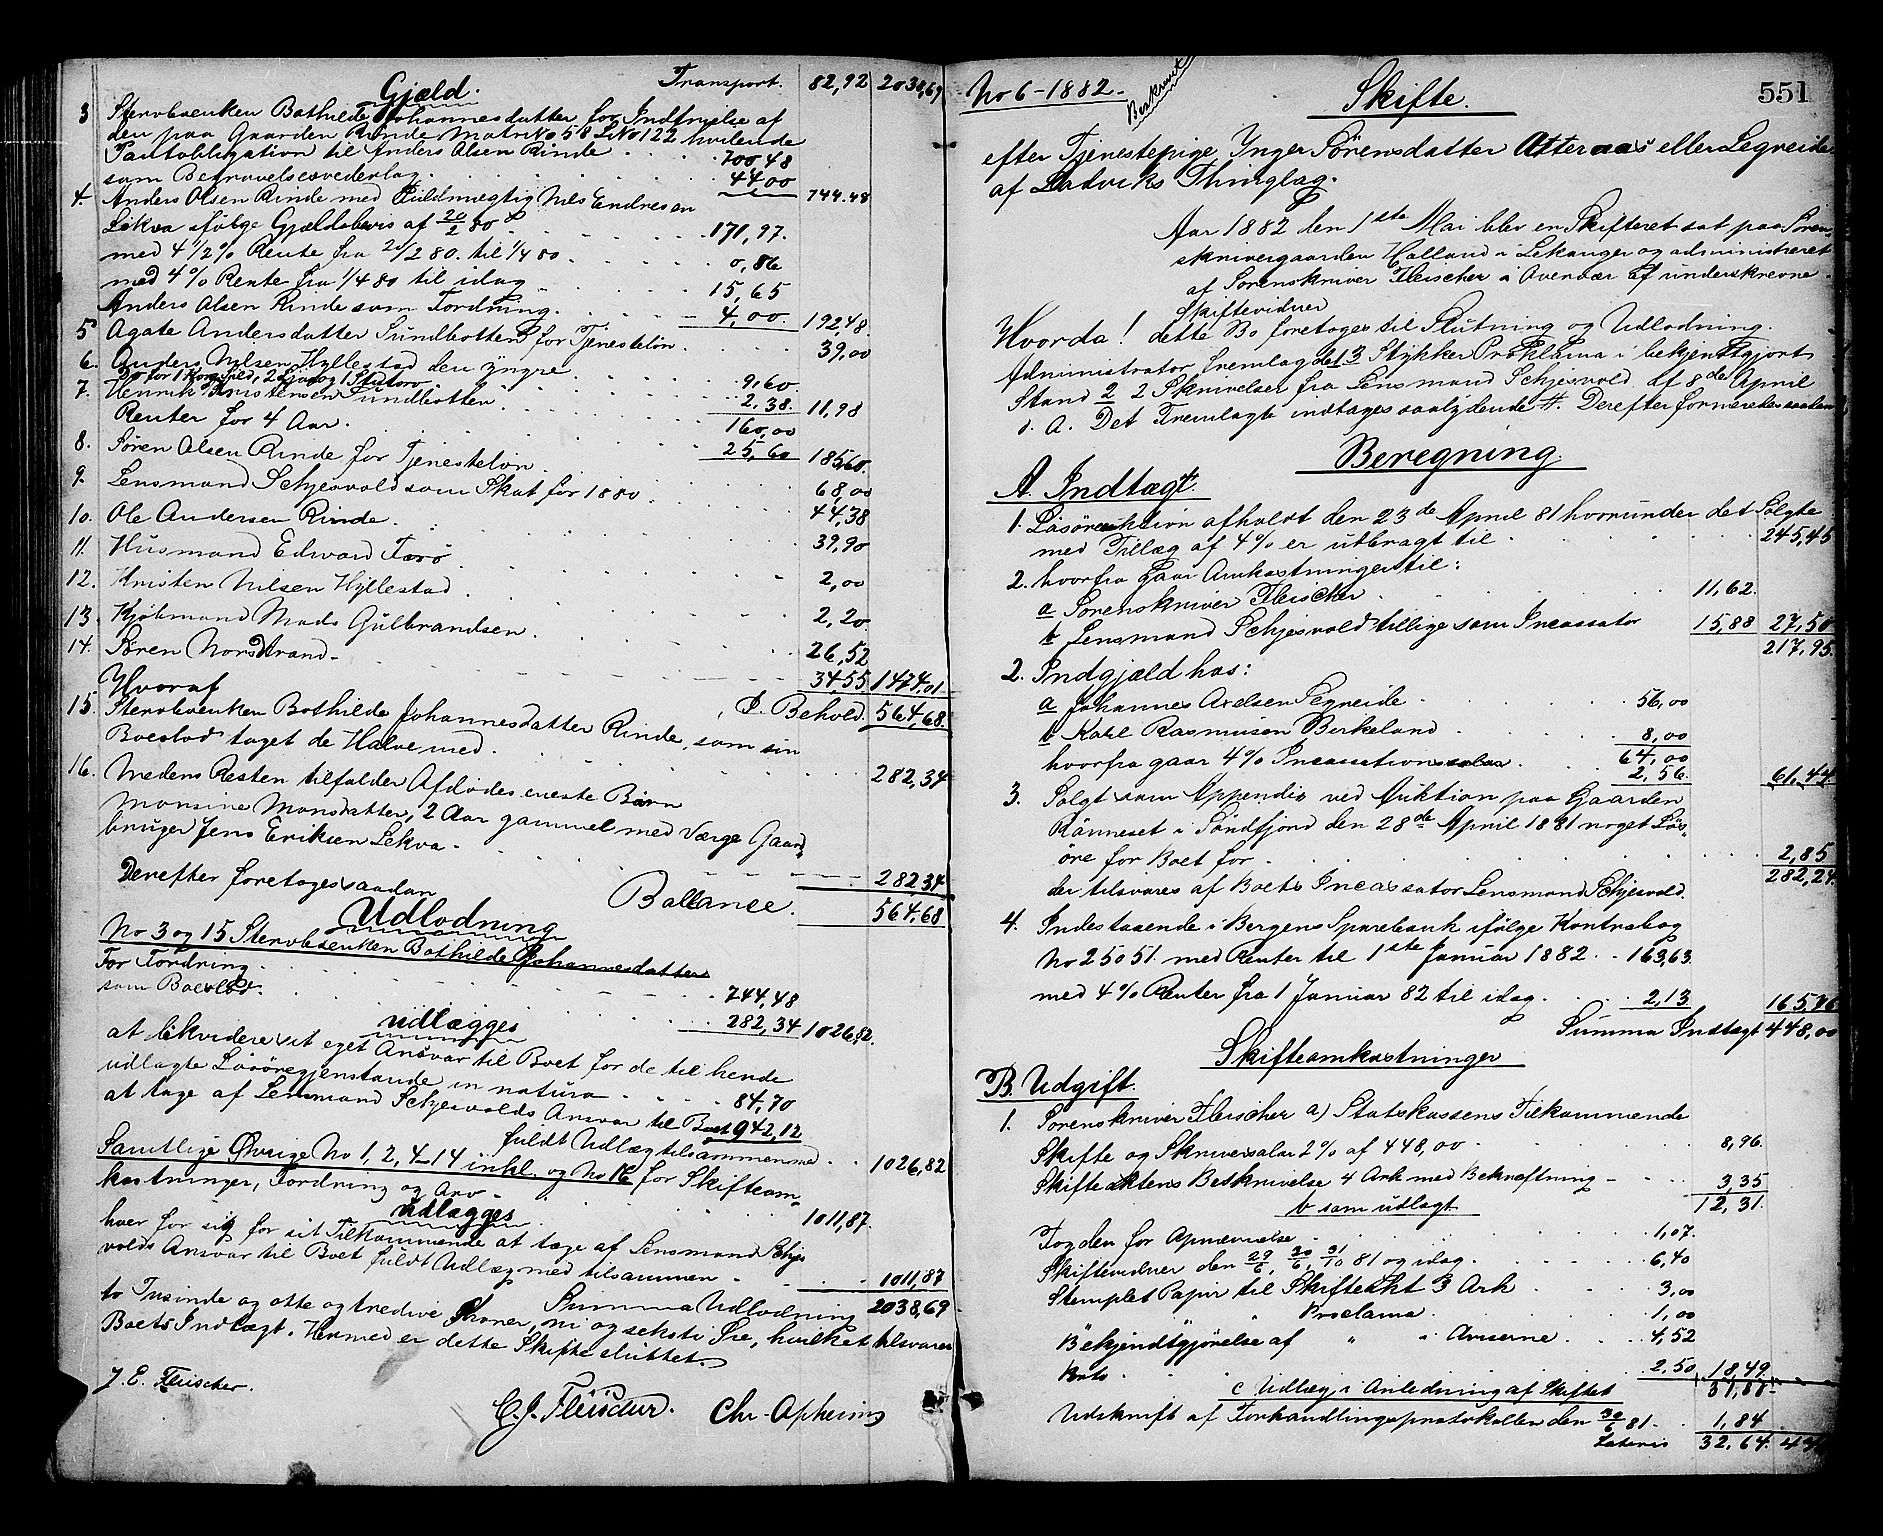 Gjæld. Transport. 82,92 2038,69
3 Stervbøenken Bothilde Johannesdatter for Indfrielse af
den paa Gaarden Rinde Matr No 58 L No 122 hvilende
Pantobligation til Anders Olsen Rinde 700,48
som Begravelsesvederlag. 44,00 744.48
4. Anders Olsen Rinde med Fuldmægtig Nils Endresen
Lekva ifølge Gjældsbevis af 20/2 80 171,97.
med 4 1/2 % Rente fra 20/2 80. til 1/4 80 0,86
med 4 % Rente fra 1/4 80 til idag 15,65
Anders Olsen Rinde som Fordring. 4,00. 192.48.
5 Agate Andersdatter Sundbotten for Tjenesteløn. 39,00
6. Anders Nilsen Hyllestad den yngre 9,60
2,38. 11,98
7. Henrik Kristensen Sundbotten 160,00
Renter for 4 Aar. 25,60 185,60.
8. Søren Olsen Rinde for Tjenesteløn. 68,00
9. Lensmand Schjesvold som Skat for 1880. 44,38
10. Ole Andersen Rinde. 39,90
11. Husmand Edvard Tarø 2,00
12. Kristen Nilsen Hyllestad. 2,20
13. Kjøbmand Mads Gulbrandsen. 26,52
14. Søren Nordstrand. 34,55 1474,01
Hvoraf I. Behold. 564,68.
15. Stervbøenken Bothilde Johannesdatter Rinde, som sin
Boeslod taget de Halve med. 282,34
16. Medens Resten tilfalder Afdødes eneste Barn
Monsine Monsdatter, 2 Aar gammel med Værge Gaard-
bruger Jens Eriksen Lekva. 282,34
Ballance. 564,68
Derefter foretoges saadan
Udlodning
No 3 og 15 Stervbøenken Bothilde Johannesdatter
For Fordring. 744,48
som Boeslod. 282,34 1026,82.
udlægges
at likvidere sit eget Ansvar til Boet for de til hende
udlagte Løsøregjenstande in natura 84,70
at tage af Lensmand Schjesvolds Ansvar til Boet 942,12
fuldt Udlæg tilsammen med 1026,82
Samtlige Øvrige No 1, 2, 4-14 inkl. og No 16 for Skifteom-
kostninger, Fordring og Arv. 1011,87.
udlægges
hver for sig for sit Tilkommende at tage af Lensmand Schjes
volds Ansvar til Boet fuldt Udlæg med tilsammen 1011,87
Summa Udlodning 2038,69.
to Tusinde og otte og tredive Kroner, ni og seksti Øre, hvilket tilsvarer
Boets Indtægt. Hermed er dette Skifte sluttet.
J. E. Fleischer.
C. J. Fleischer. Chr. Opheim
No 6-1882. Beskrevet Skifte. 551
efter Tjenestepige Ynger Sørensdatter Atteraas eller Legreide
af Ladviks Thinglag.
Aar 1882 den 1ste Mai blev en Skifteret sat paa Soren-
skrivergaarden Halland i Lekanger og administreret
af Sorenskriver Fleischer i Overvær af underskrevne
Skiftevidner
Hvorda! dette Bo foretoges til Slutning og Udlodning.
Administrator fremlagde 1 3 Stykker Proklama i bekjentgjort
Stand 2 2 Skrivelser fra Lensmand Schjesvold af 8de April
d. A. Det Fremlagte indtages saalydende #. Derefter forneretes saadan
Beregning.
A. Indtægt.
1. Løsøreauktion afholdt den 23de April 81 hvorunder det Solgte
med Tillæg af 4 % er utbragt til 245,45
2. hvorfra gaar Omkostninger til:
a Sorenskriver Fleischer 11,62.
b Lensmand Schjesvold tillige som Incassator 15,88 27,50
217,95.
2. Indgjæld hos:
a Johannes Axelsen Segneide 56,00
b Karl Rasmusen Birkeland 8,00
64,00
hvorfra gaar 4 % Incassationssalær. 2,56. 61,44
3. Solgt som Appendix ved Auktion paa Gaarden
Rønneset i Søndfjord den 28de April 1881 noget Løs-
øre for Boet for 2,85
282,24.
der tilsvares af Boets Incassator Lensmand Schjesvold.
4. Indestaaende i Bergens Sparebank ifølge Kontrabog
No 25051. med Renter til 1ste Januar 1882 163,63.
med 4 % Renter fra 1 Januar 82 til idag. 2,13 165,76
Summa Indtægt 448,00
Skifteomkostninger
B. Udgift.
1. Sorenskriver Fleischer a) Statskassens Tilkommende
Skifte og Skriversalær 2 % af 448,00 8,96.
Skifteaktens Beskrivelse 4 Ark med Bekræftning 3,35
12,31.
b som udlagt
Fogden for Opnævnelse 1,07.
Skiftevidner den 29/6, 30/6, 31/10 81 og idag. 6,40
Stemplet Papir til Skifteakt 3 Ark 3,00
" " Proclama 1,00
Bekjendtgjørelse af " i Aviserne 4,52
Porto 2,50 18,49.
c Udlæg i Anledning af Skiftet 31,80
Udskrift af Forhandlingsprotokollen den 30/6 81. 1,84
Lateris 32,64. 448